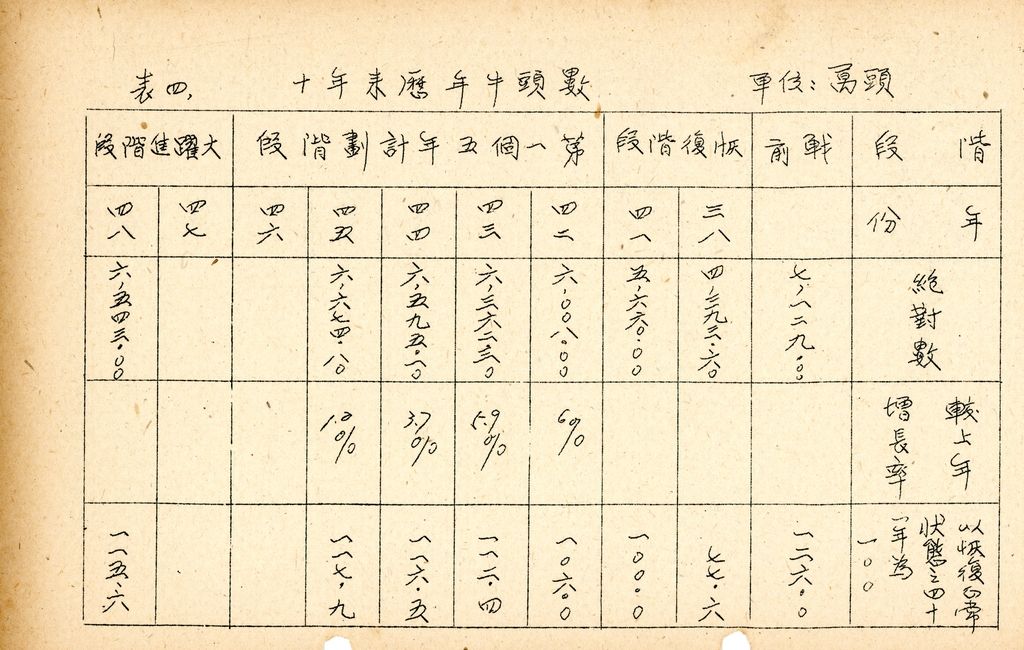 表四,
十年来歷年牛頭數
單位:萬頭
階段
戰前
恢復階段
第一個五年計劃階段
大躍進階段
年份
三八
四一
四二
四三
四四
四五
四六
四七
四八
絕對數
七,一二九.〇〇
四,三九三.六〇
五,六六〇.〇〇
六,〇〇八.〇〇
六,三六二.三〇
六,五九五.一〇
六,六七四.八〇
六,五四三.〇〇
較上年
增長率
6%
5.9%
3.7%
1.2%
以恢復正常
狀態之四十
一年為
一〇〇
一二六.〇
七七.六
一〇〇.〇
一〇六.〇
一一二.四
一一六.五
一一七.九
一一五.六